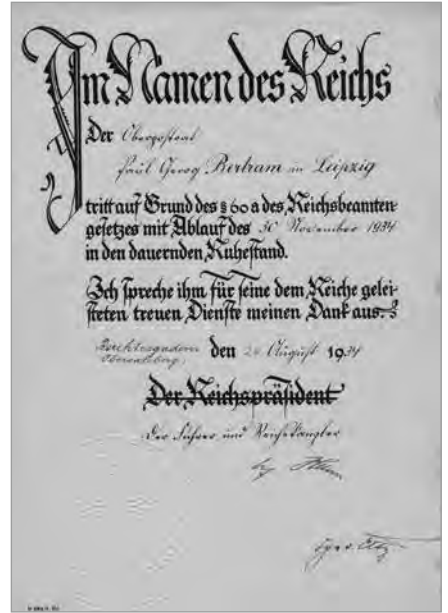 Im Namen des Reichs
Der Oberpostrat
Paul Georg Bertram in Leipzig
tritt auf Grund des § 60a des Reichsbeamten-
gesetzes mit Ablauf des 30 November 1934
in den dauernden Ruhestand.
Ich spreche ihm für seine dem Reiche gelei-
steten treuen Dienste meinen Dank aus.
Berchtesgaden den August 1934
Obersalzberg,
Der Reichspräsident
Der Führer und Reichskanzler